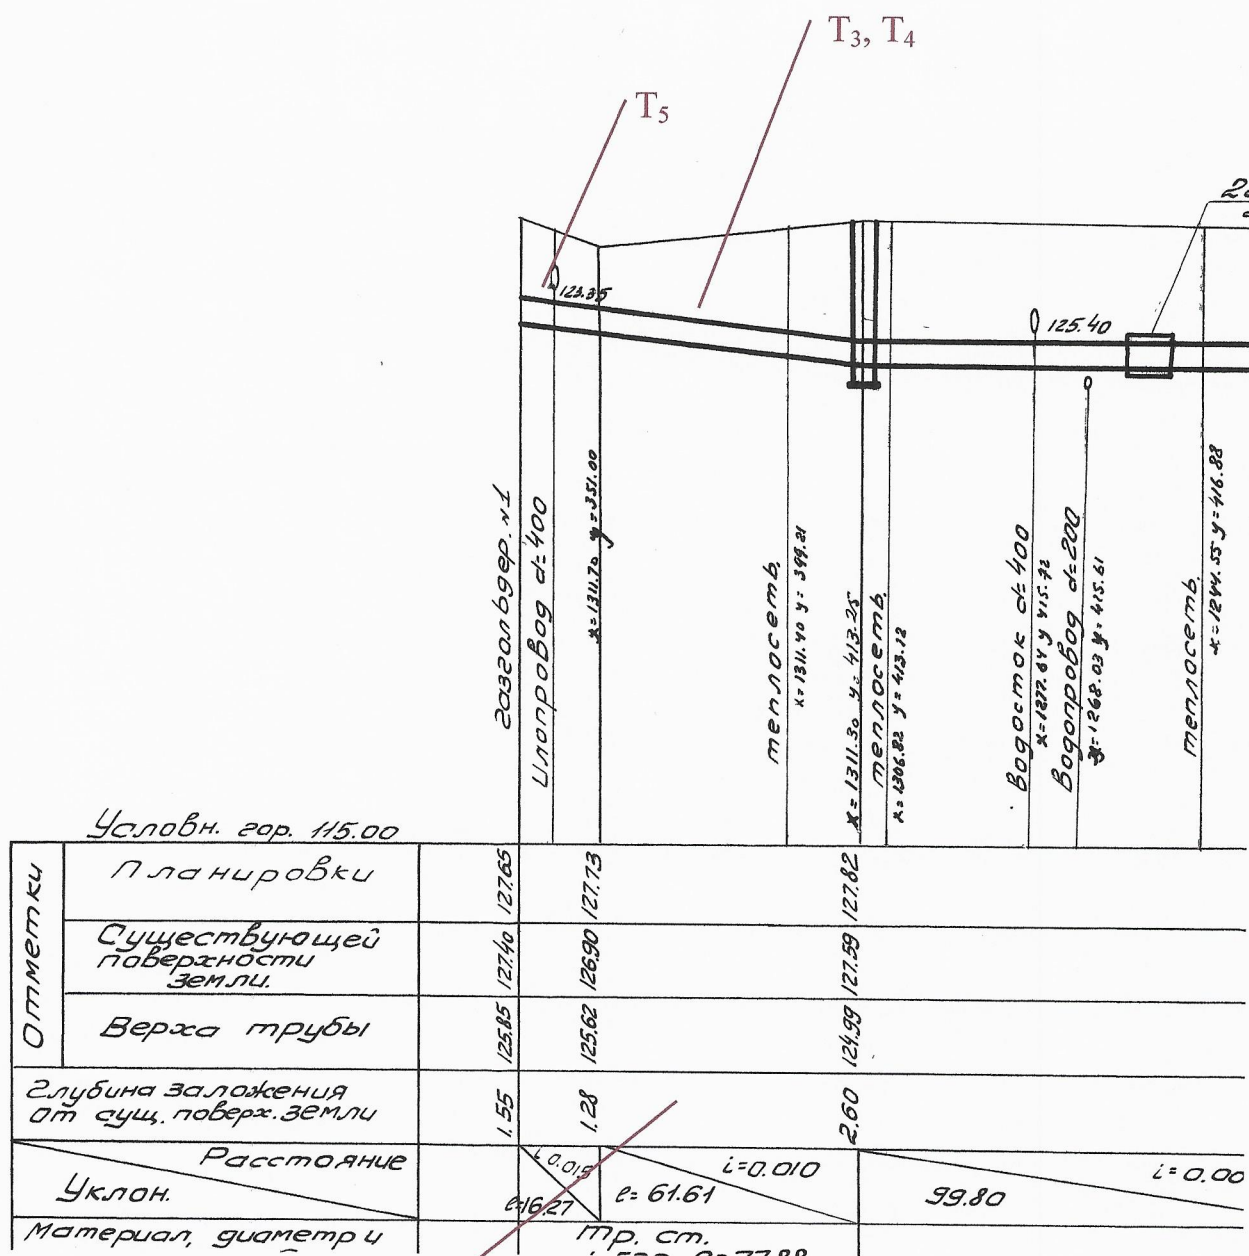 T3, T4
T5
123.35
125.40
газгольдер. №1
Илопровод d=400
x=1311.70 y=351.00
теплосеть.
x=1311.40 y=399.21
x=1311.30 y=413.25
теплосеть.
x=1306.82 y=413.12
Водосток d=400
x=1277.64 y 415.72
Водопровод d=200
x=1268.03 y=415.61
теплосеть.
x=1244.55 y=416.88
Условн. гор. 115.00
Отметки
Планировки
127.65 127.73 127.82
Существующей
поверхности
земли.
127.40 126.90 127.59
Верха трубы
125.85 125.62 124.99
Глубина заложения
от сущ. поверх. земли
1.55 1.28 2.60
Расстояние
Уклон.
i 0.015
l=16.27
i=0.010
l=61.61
i=0.00
99.80
Материал, диаметр и
тр. ст.